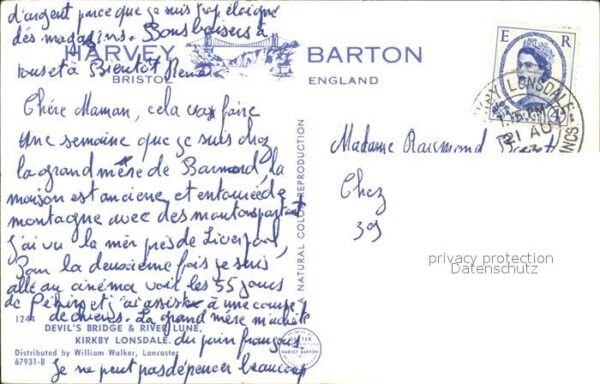 d'argent parce que je suis trop éloigné
des magasins. Bons baisers à
tous et à Bientôt
HARVEY BARTON
BRISTOL ENGLAND
Chère Maman, cela va faire
une semaine que je suis chez
la grand mère de Barnard, la
maison est ancienne et entourée de
montagne avec des moutons partout
j'ai vu la mer près de Liverpool,
Pour la deuxième fois je suis
allé au cinéma voir les 55 jours
de Pékin et j'ai assisté à une course
de chiens. La grand mère m'achète
du pain français.
Je ne peut pas dépenser beaucoup
1244
DEVIL'S BRIDGE & RIVER LUNE,
KIRKBY LONSDALE.
Distributed by William Walker, Lancaster
67931-B
NATURAL COLOR REPRODUCTION
HARVEY BARTON
E R
LONSDALE
21 AU
Madame Raymond
Chez
39
privacy protection
Datenschutz